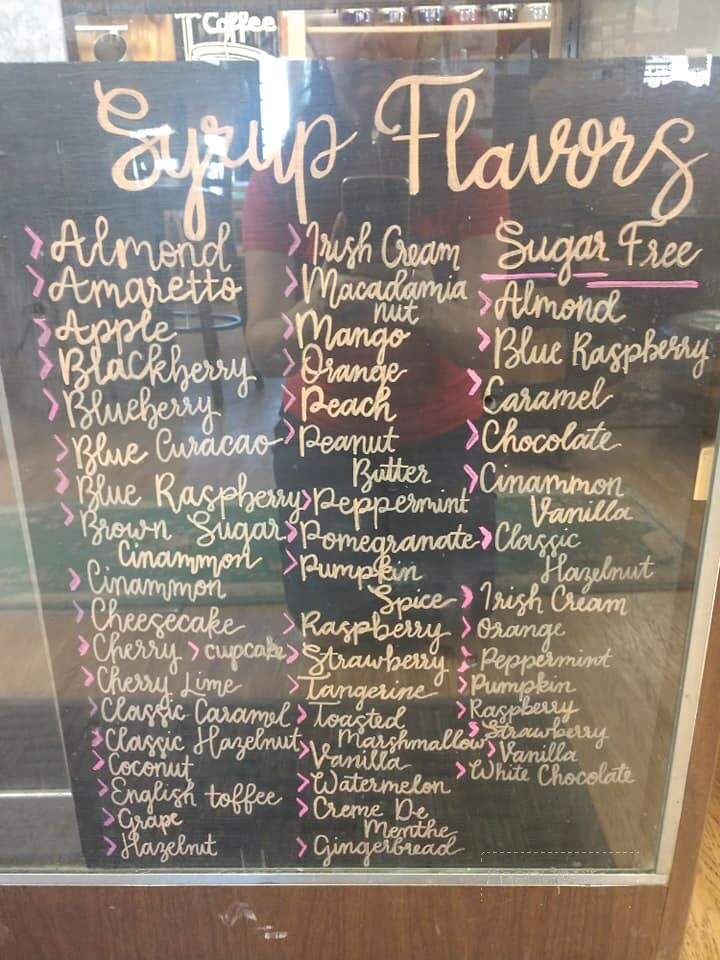 Coffee
Syrup Flavors
Almond
Amaretto
Apple
Blackberry
Blueberry
Blue Curacao
Blue Raspberry
Brown Sugar
Cinammon
Cinammon
Cheesecake
Cherry > cupcake
Cherry Lime
Classic Caramel
Classic Hazelnut
Coconut
English toffee
Grape
Hazelnut
Irish Cream
Macadamia
nut
Mango
Orange
Peach
Peanut
Butter
Peppermint
Pomegranate
Pumpkin
Spice
Raspberry
Strawberry
Tangerine
Toasted
Marshmallow
Vanilla
Watermelon
Creme De
Menthe
Gingerbread
Sugar Free
Almond
Blue Raspberry
Caramel
Chocolate
Cinammon
Vanilla
Classic
Hazelnut
Irish Cream
Orange
Peppermint
Pumpkin
Raspberry
Strawberry
Vanilla
White Chocolate